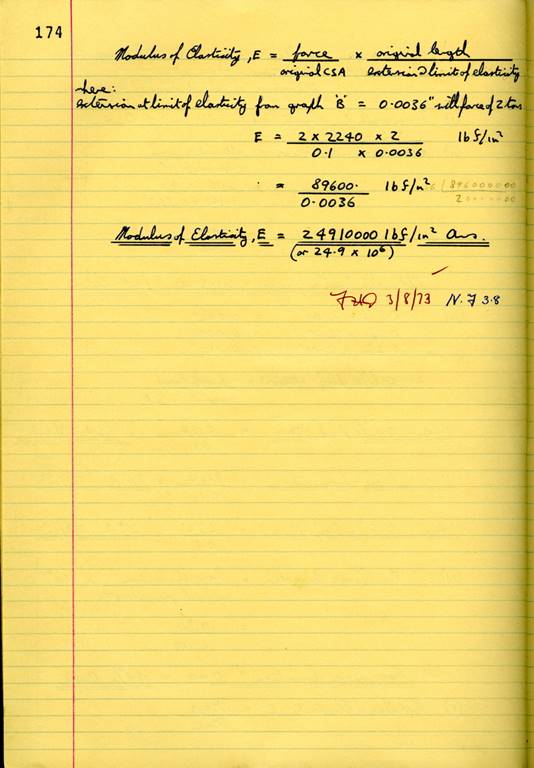 174
Modulus of Elasticity, E = force / original CSA × original length / extension @ limit of elasticity
here:
extension at limit of elasticity from graph 'B' = 0.0036" with force of 2 tons
E = 2 × 2240 × 2 / 0.1 × 0.0036 lbf/in²
= 89600. / 0.0036 lbf/in²
Modulus of Elasticity, E = 24910000 lbf/in² Ans.
(or 24.9 × 10⁶)
3/8/73 N.F 3.8